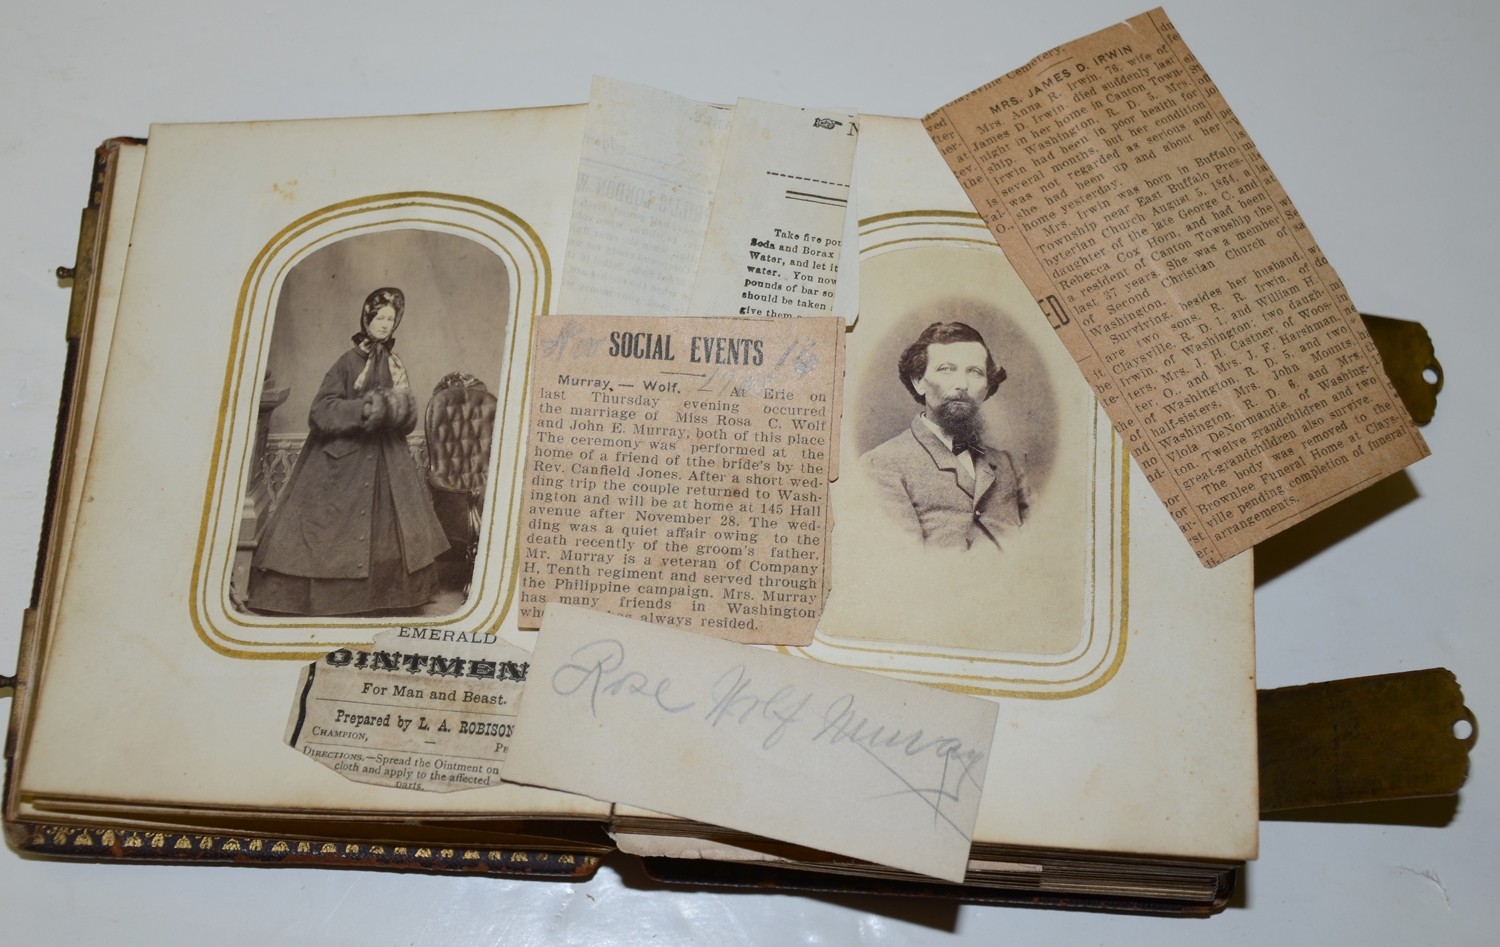 Take five pou
Soda and Borax
Water, and let it
water. You now
pounds of bar so
should be taken
give them
SOCIAL EVENTS
Nov 16
Murray — Wolf. — At Erie on
last Thursday evening occurred
the marriage of Miss Rosa C. Wolf
and John E. Murray, both of this place
The ceremony was performed at the
home of a friend of tthe bride's by the
Rev. Canfield Jones. After a short wed-
ding trip the couple returned to Wash-
ington and will be at home at 145 Hall
avenue after November 28. The wed-
ding was a quiet affair owing to the
death recently of the groom's father.
Mr. Murray is a veteran of Company
H. Tenth regiment and served through
the Philippine campaign. Mrs. Murray
has many friends in Washington
always resided.
Claysville Cemetery.
MRS. JAMES D. IRWIN
Mrs. Anna R. Irwin, 76, wife of
James D. Irwin, died suddenly last
night in her home in Canton Town-
ship, Washington, R. D. 5. Mrs.
Irwin had been in poor health for
several months, but her condition
was not regarded as serious and
she had been up and about her
home yesterday.
Mrs. Irwin was born in Buffalo
Township near East Buffalo Pres-
byterian Church August 5, 1864, a
daughter of the late George C. and
Rebecca Cox Horn, and had been
a resident of Canton Township the
last 37 years. She was a member
of Second Christian Church of
Washington.
Surviving, besides her husband,
are two sons, R. R. Irwin, of
Claysville, R. D. 1, and William H.
Irwin, of Washington; two daugh-
ters, Mrs. J. H. Castner, of Woos-
ter, O., and Mrs. J. F. Harshman,
of Washington, R. D. 5, and two
half-sisters, Mrs. John Mounts,
Washington, R. D. 6, and Mrs.
Viola DeNormandie, of Washing-
ton. Twelve grandchildren and two
great-grandchildren also survive.
The body was removed to the
Brownlee Funeral Home at Clays-
ville pending completion of funeral
arrangements.
ED
EMERALD
OINTMEN
For Man and Beast.
Prepared by L. A. ROBISON
CHAMPION,
DIRECTIONS.—Spread the Ointment on
cloth and apply to the affected
parts.
Rose Wolf Murray